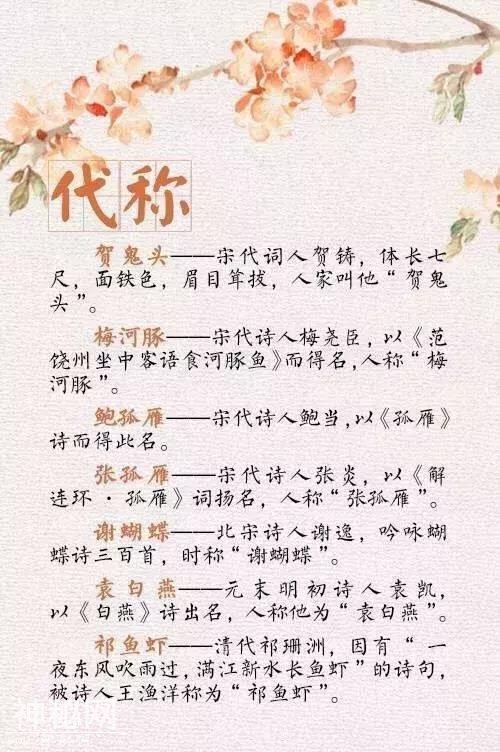 代称
贺鬼头——宋代词人贺铸，体长七
尺，面铁色，眉目耸拔，人家叫他“贺鬼
头”。
梅河豚——宋代诗人梅尧臣，以《范
饶州坐中客语食河豚鱼》而得名，人称“梅
河豚”。
鲍孤雁——宋代诗人鲍当，以《孤雁》
诗而得此名。
张孤雁——宋代诗人张炎，以《解
连环·孤雁》词扬名，人称“张孤雁”。
谢蝴蝶——北宋诗人谢逸，吟咏蝴
蝶诗三百首，时称“谢蝴蝶”。
袁白燕——元末明初诗人袁凯，
以《白燕》诗出名，人称他为“袁白燕”。
祁鱼虾——清代祁珊洲，因有“一
夜东风吹雨过，满江新水长鱼虾”的诗句，
被诗人王渔洋称为“祁鱼虾”。